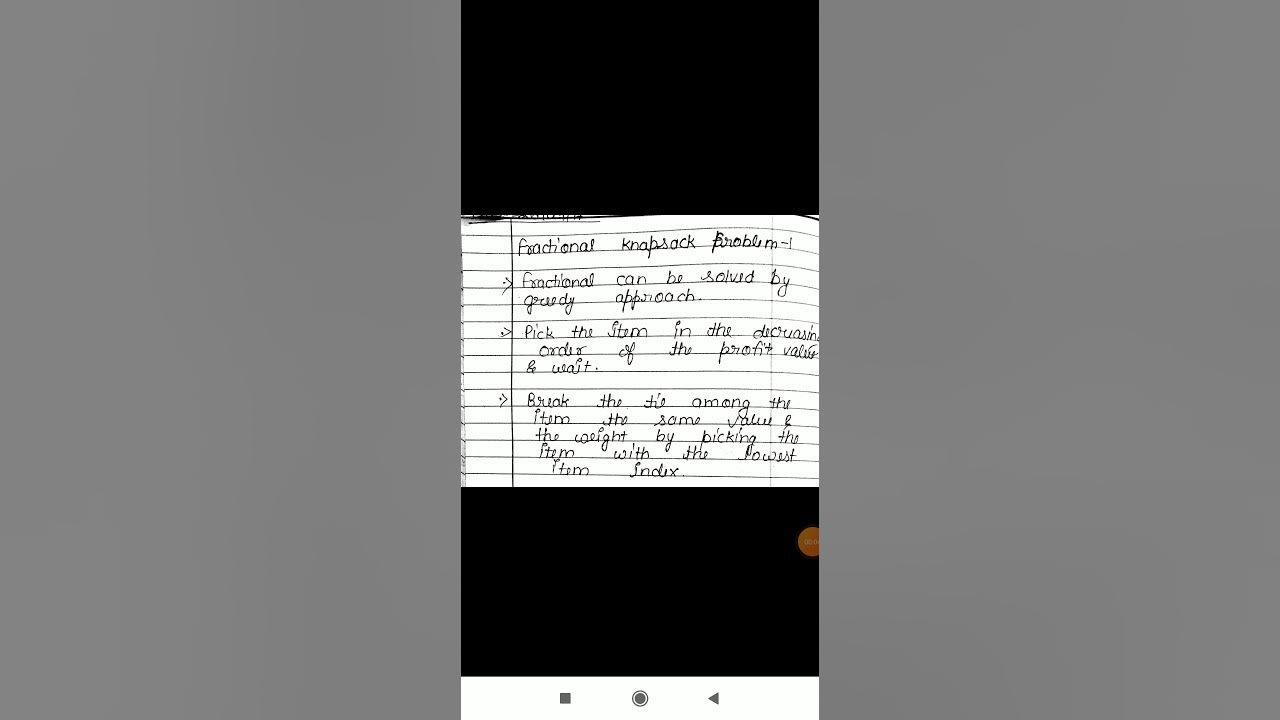 Fractional knapsack Problem-1
:> Fractional can be solved by
greedy approach.
:> Pick the item in the decreasin
order of the profit value
& wait.
:> Break the tie among the
item the same value &
the weight by picking the
item with the lowest
item index.